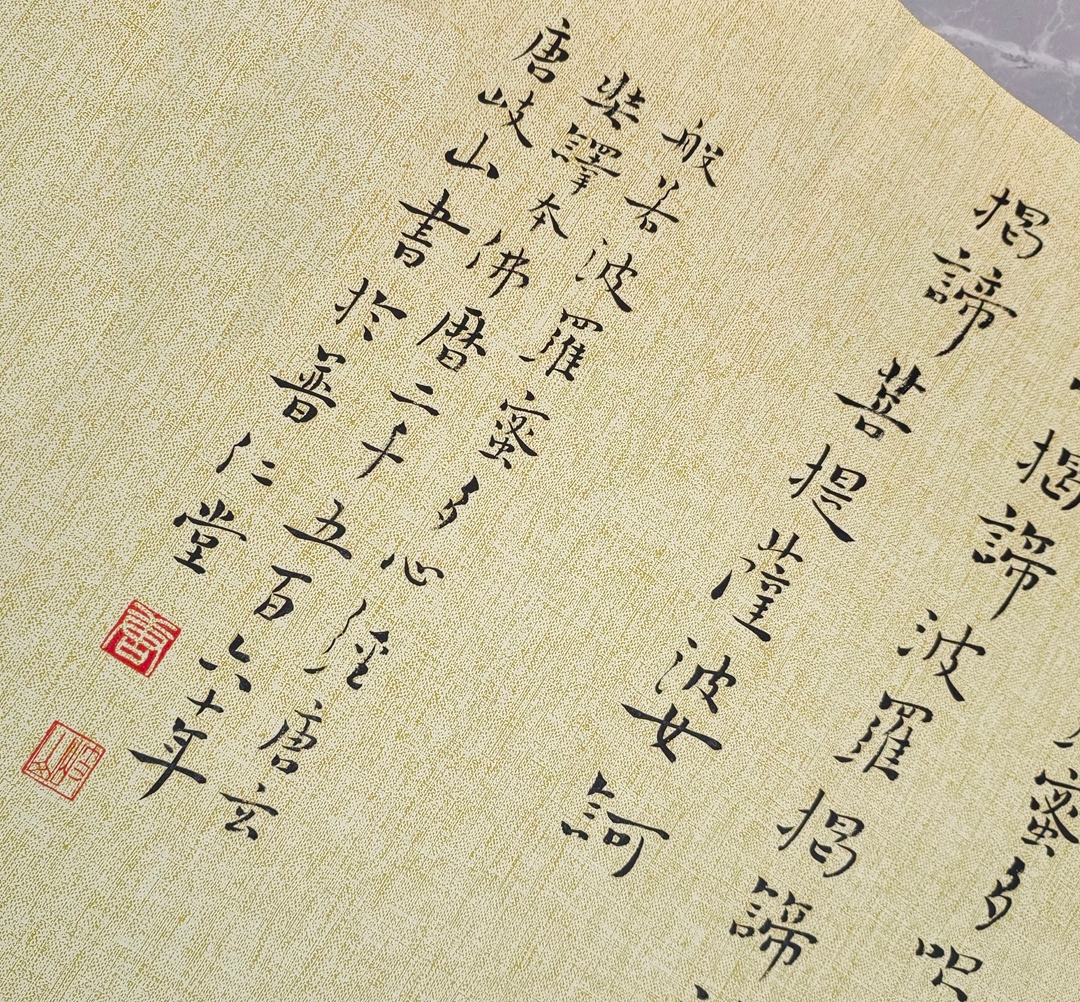 蜜多呪
揭諦波羅揭諦
揭諦菩提薩婆訶
般若波羅蜜多心經唐玄
奘譯本佛曆二千五百六十年
唐岐山書於普仁堂
唐